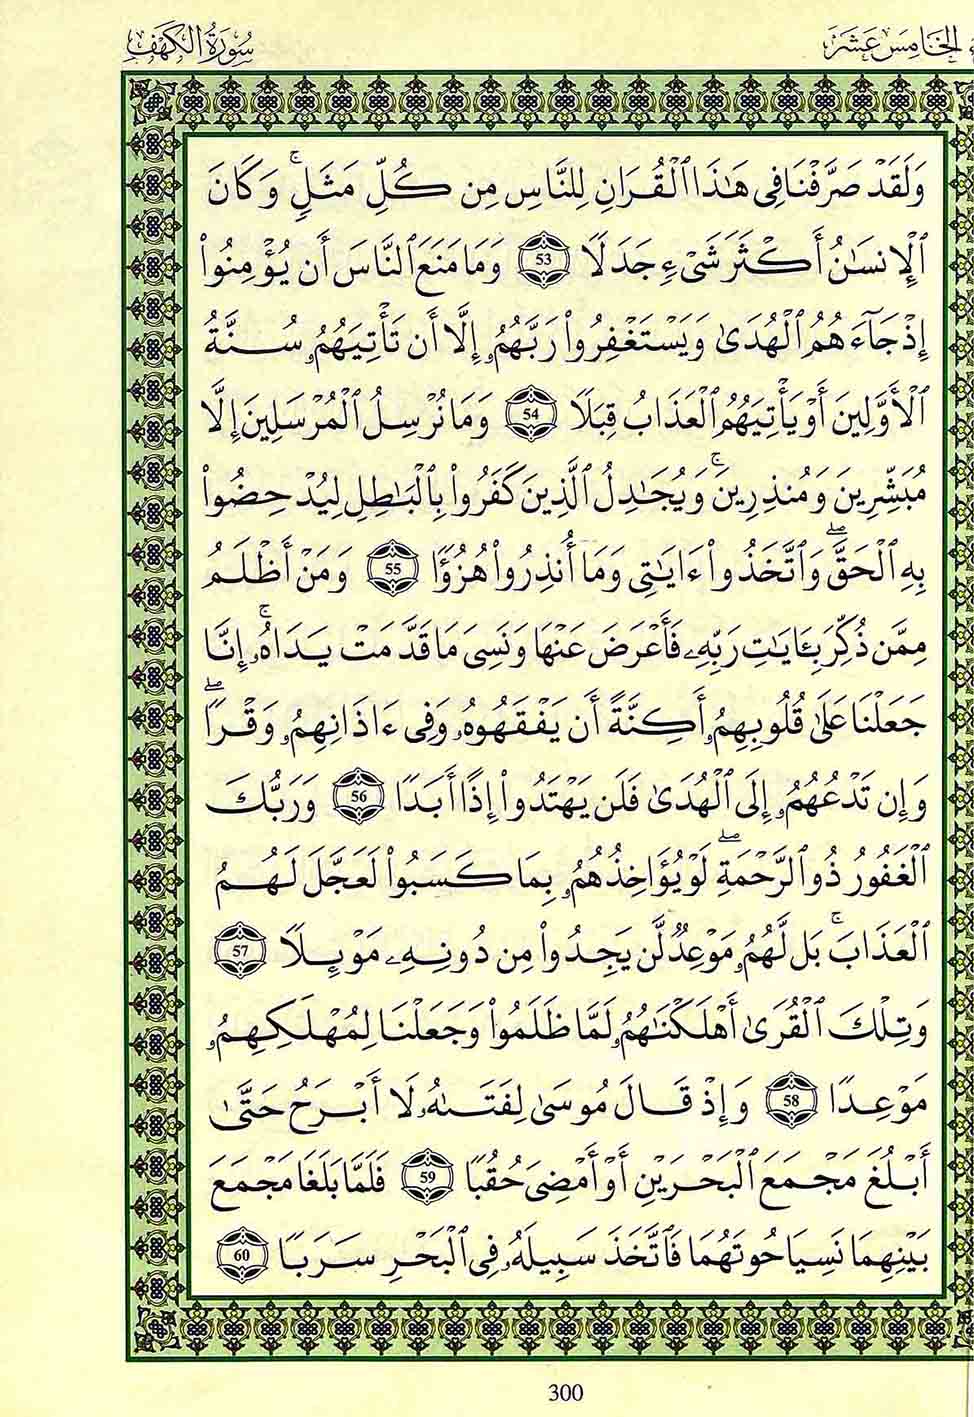 الخامس عشر
سورة الكهف
وَلَقَدْ صَرَّفْنَا فِى هَٰذَا ٱلْقُرَانِ لِلنَّاسِ مِن كُلِّ مَثَلٍۚ وَكَانَ
ٱلْإِنسَٰنُ أَكْثَرَ شَىْءٍ جَدَلًا 53 وَمَا مَنَعَ ٱلنَّاسَ أَن يُؤْمِنُوا۟
إِذْ جَآءَهُمُ ٱلْهُدَىٰ وَيَسْتَغْفِرُوا۟ رَبَّهُمُۥٓ إِلَّا أَن تَأْتِيَهُمُۥ سُنَّةُ
ٱلْأَوَّلِينَ أَوْ يَأْتِيَهُمُ ٱلْعَذَابُ قِبَلًا 54 وَمَا نُرْسِلُ ٱلْمُرْسَلِينَ إِلَّا
مُبَشِّرِينَ وَمُنذِرِينَۚ وَيُجَٰدِلُ ٱلَّذِينَ كَفَرُوا۟ بِٱلْبَٰطِلِ لِيُدْحِضُوا۟
بِهِ ٱلْحَقَّۖ وَٱتَّخَذُوا۟ ءَايَٰتِى وَمَا أُنذِرُوا۟ هُزُؤًا 55 وَمَنْ أَظْلَمُ
مِمَّن ذُكِّرَ بِـَٔايَٰتِ رَبِّهِۦ فَأَعْرَضَ عَنْهَا وَنَسِىَ مَا قَدَّمَتْ يَدَاهُۥۚ إِنَّا
جَعَلْنَا عَلَىٰ قُلُوبِهِمُۥ أَكِنَّةً أَن يَفْقَهُوهُۥ وَفِى ءَاذَانِهِمُۥ وَقْرًاۖ
وَإِن تَدْعُهُمُۥ إِلَى ٱلْهُدَىٰ فَلَن يَهْتَدُوا۟ إِذًا أَبَدًا 56 وَرَبُّكَ
ٱلْغَفُورُ ذُو ٱلرَّحْمَةِۖ لَوْ يُؤَاخِذُهُمُۥ بِمَا كَسَبُوا۟ لَعَجَّلَ لَهُمُ
ٱلْعَذَابَۚ بَل لَّهُمُۥ مَوْعِدٌ لَّن يَجِدُوا۟ مِن دُونِهِۦ مَوْئِلًا 57
وَتِلْكَ ٱلْقُرَىٰ أَهْلَكْنَٰهُمُۥ لَمَّا ظَلَمُوا۟ وَجَعَلْنَا لِمُهْلَكِهِمُۥ
مَوْعِدًا 58 وَإِذْ قَالَ مُوسَىٰ لِفَتَىٰهُۥ لَا أَبْرَحُ حَتَّىٰ
أَبْلُغَ مَجْمَعَ ٱلْبَحْرَيْنِ أَوْ أَمْضِىَ حُقُبًا 59 فَلَمَّا بَلَغَا مَجْمَعَ
بَيْنِهِمَا نَسِيَا حُوتَهُمَا فَٱتَّخَذَ سَبِيلَهُۥ فِى ٱلْبَحْرِ سَرَبًا 60
300